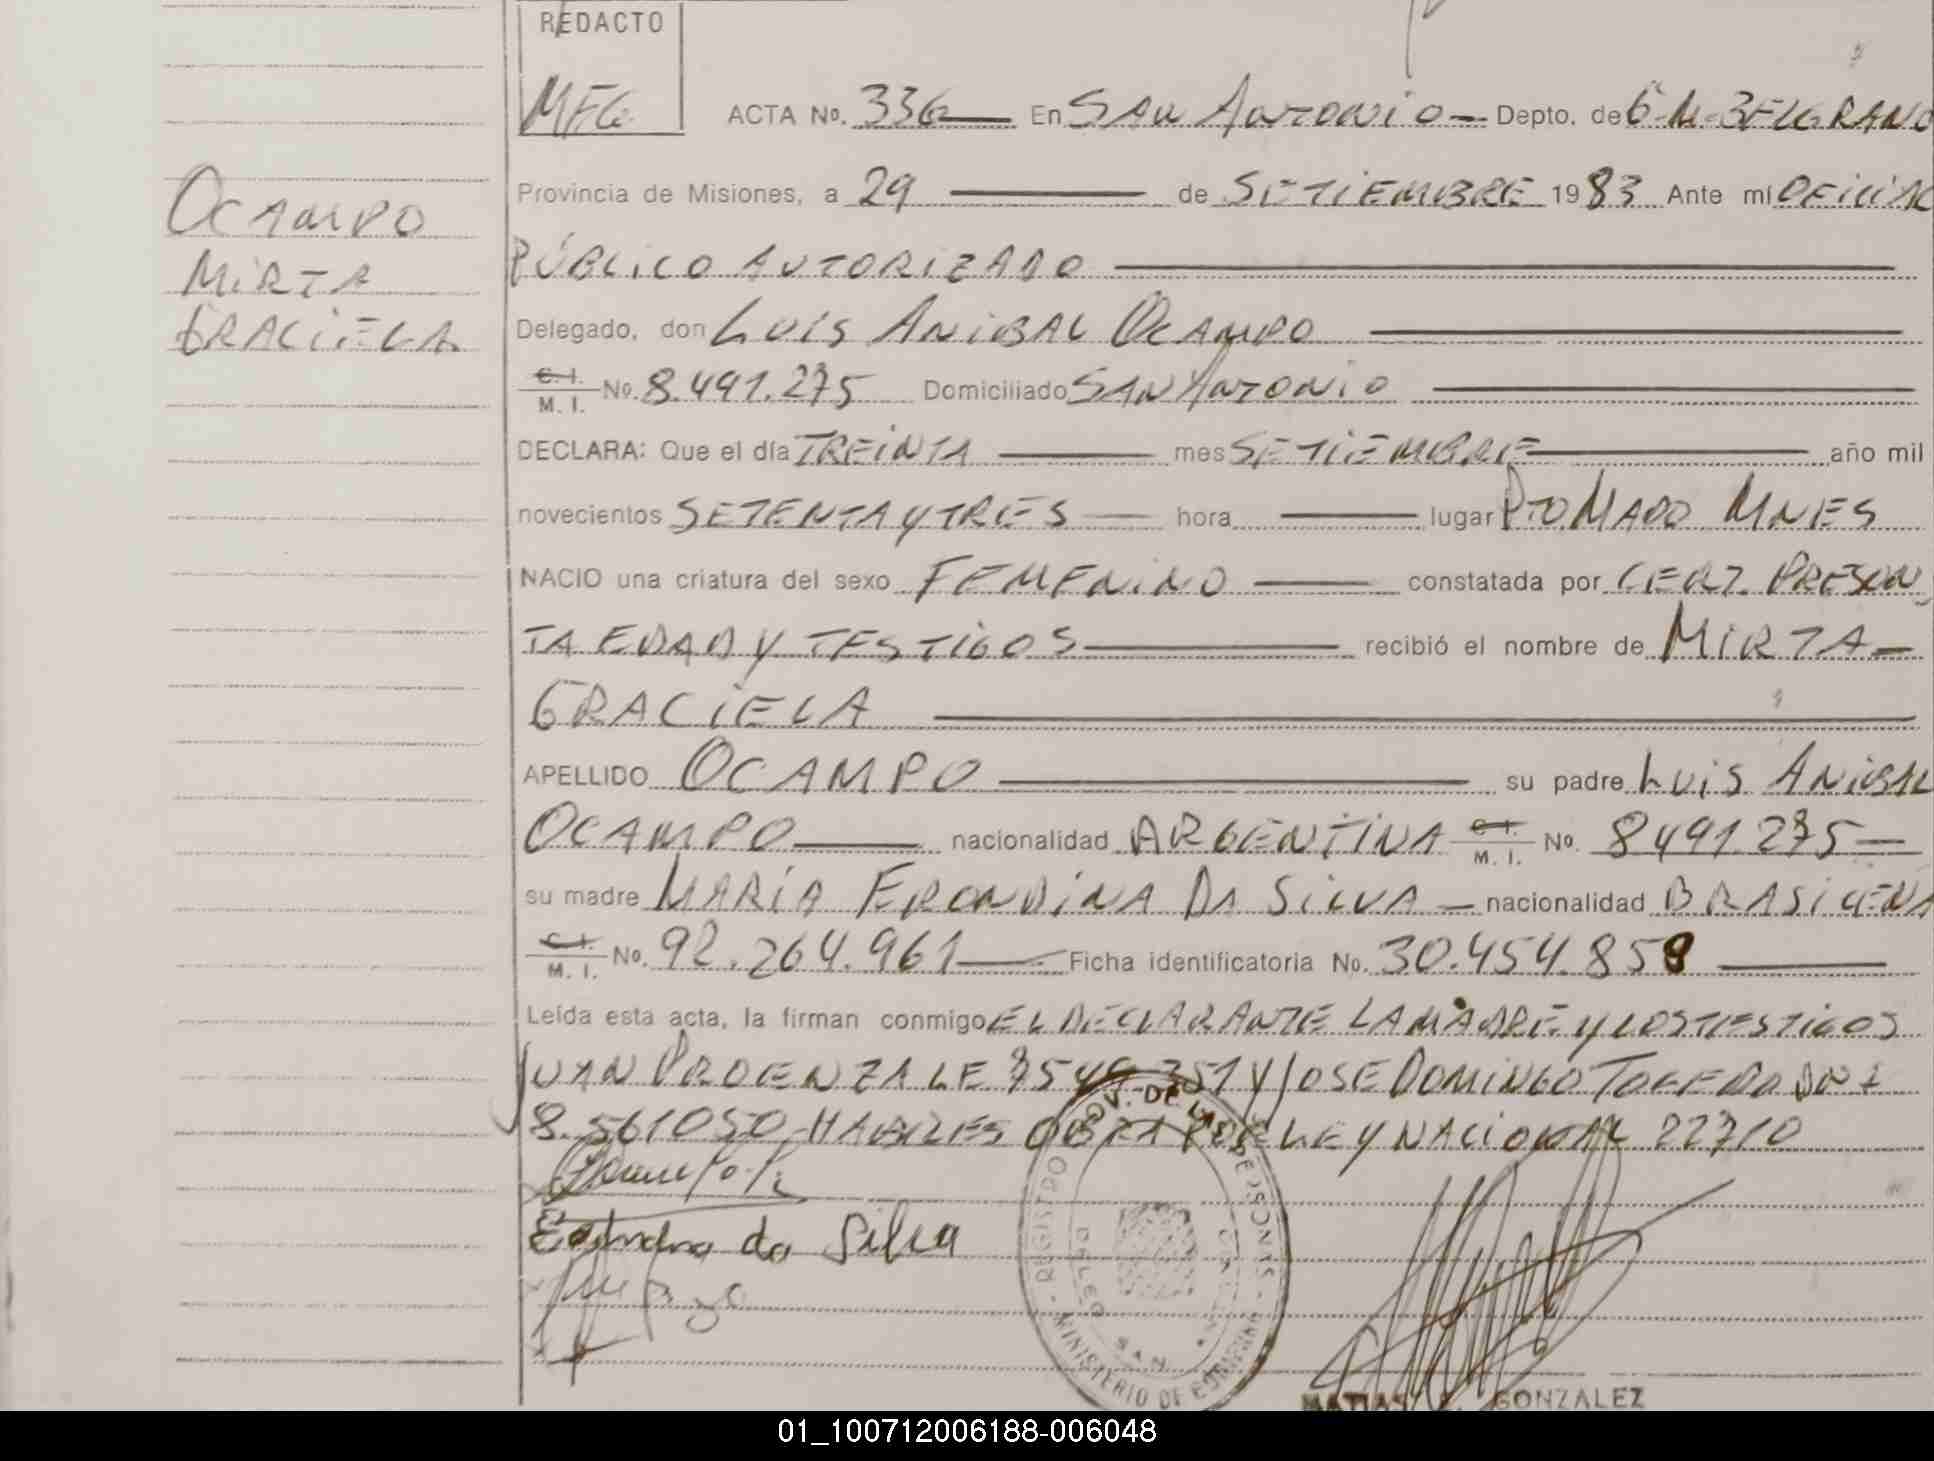 REDACTO
MFG
ACTA No. 336 En SAN ANTONIO Depto. de G. M. BELGRANO
Provincia de Misiones, a 29 de SETIEMBRE 1983 Ante mí OFICIAL
PÚBLICO AUTORIZADO
Delegado, don LUIS ANIBAL OCAMPO
C. I. M. I. No. 8.491.275 Domiciliado SAN ANTONIO
DECLARA: Que el día TREINTA mes SETIEMBRE año mil
novecientos SETENTA Y TRES hora lugar PTO. MADO MNES
NACIO una criatura del sexo FEMENINO constatada por CERT. PRESUN
TA EDAD Y TESTIGOS recibió el nombre de MIRTA
GRACIELA
APELLIDO OCAMPO su padre LUIS ANIBAL
OCAMPO nacionalidad ARGENTINA C. I. M. I. No. 8.491.275
su madre MARIA ERONDINA DA SILVA nacionalidad BRASILEÑA
C. I. M. I. No. 92.264.961 Ficha identificatoria No. 30.454.858
Leída esta acta, la firman conmigo EL DECLARANTE LA MADRE Y LOS TESTIGOS
JUAN PROENZA LE 7549.351 Y JOSE DOMINGO DNI
8.561050 HABILES OBRA POR LEY NACIONAL 22710
da Silva
OCAMPO
MIRTA
GRACIELA
GOV. DE
REGISTRO
PERSONAS
MINISTERIO DE GOBIERNO
DELEG.
SAN
MATIAS GONZALEZ
01_100712006188-006048